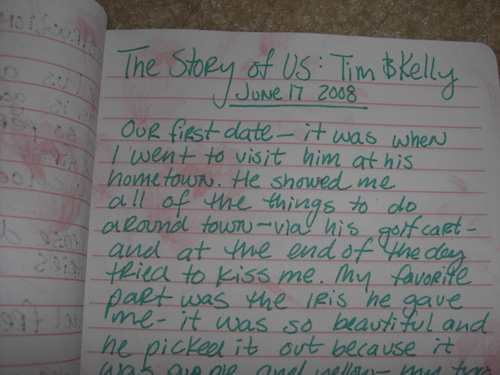 The Story of Us: Tim & Kelly
June 17 2008
Our first date - it was when
I went to visit him at his
hometown. He showed me
all of the things to do
around town - via his golf cart -
and at the end of the day
tried to kiss me. My favorite
part was the iris he gave
me - it was so beautiful and
he picked it out because it
was purple and yellow - my two